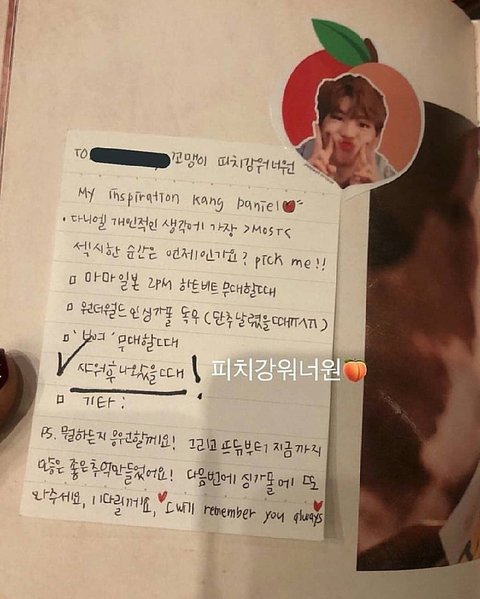 TO 꼬맹이 피치강워너원
My inspiration kang Daniel
· 다니엘 개인적인 생각에 가장 >MOST<
섹시한 순간은 언제인가요? pick me!!
□ 마마일본 2PM 하트비트 무대할때
□ 원더월드 인 싱가폴 독무 (단추 날렸을때
□ 무대할때
샤워후 나왔을때 !
피치강워너원🍑
□ 기타 :
PS. 뭘하든지 응원할께요! 그리고 프듀부터 지금까지
모든 좋은추억만들었어요! 다음번에 싱가폴에 또
와주세요, 기다릴께요, I will remember you always